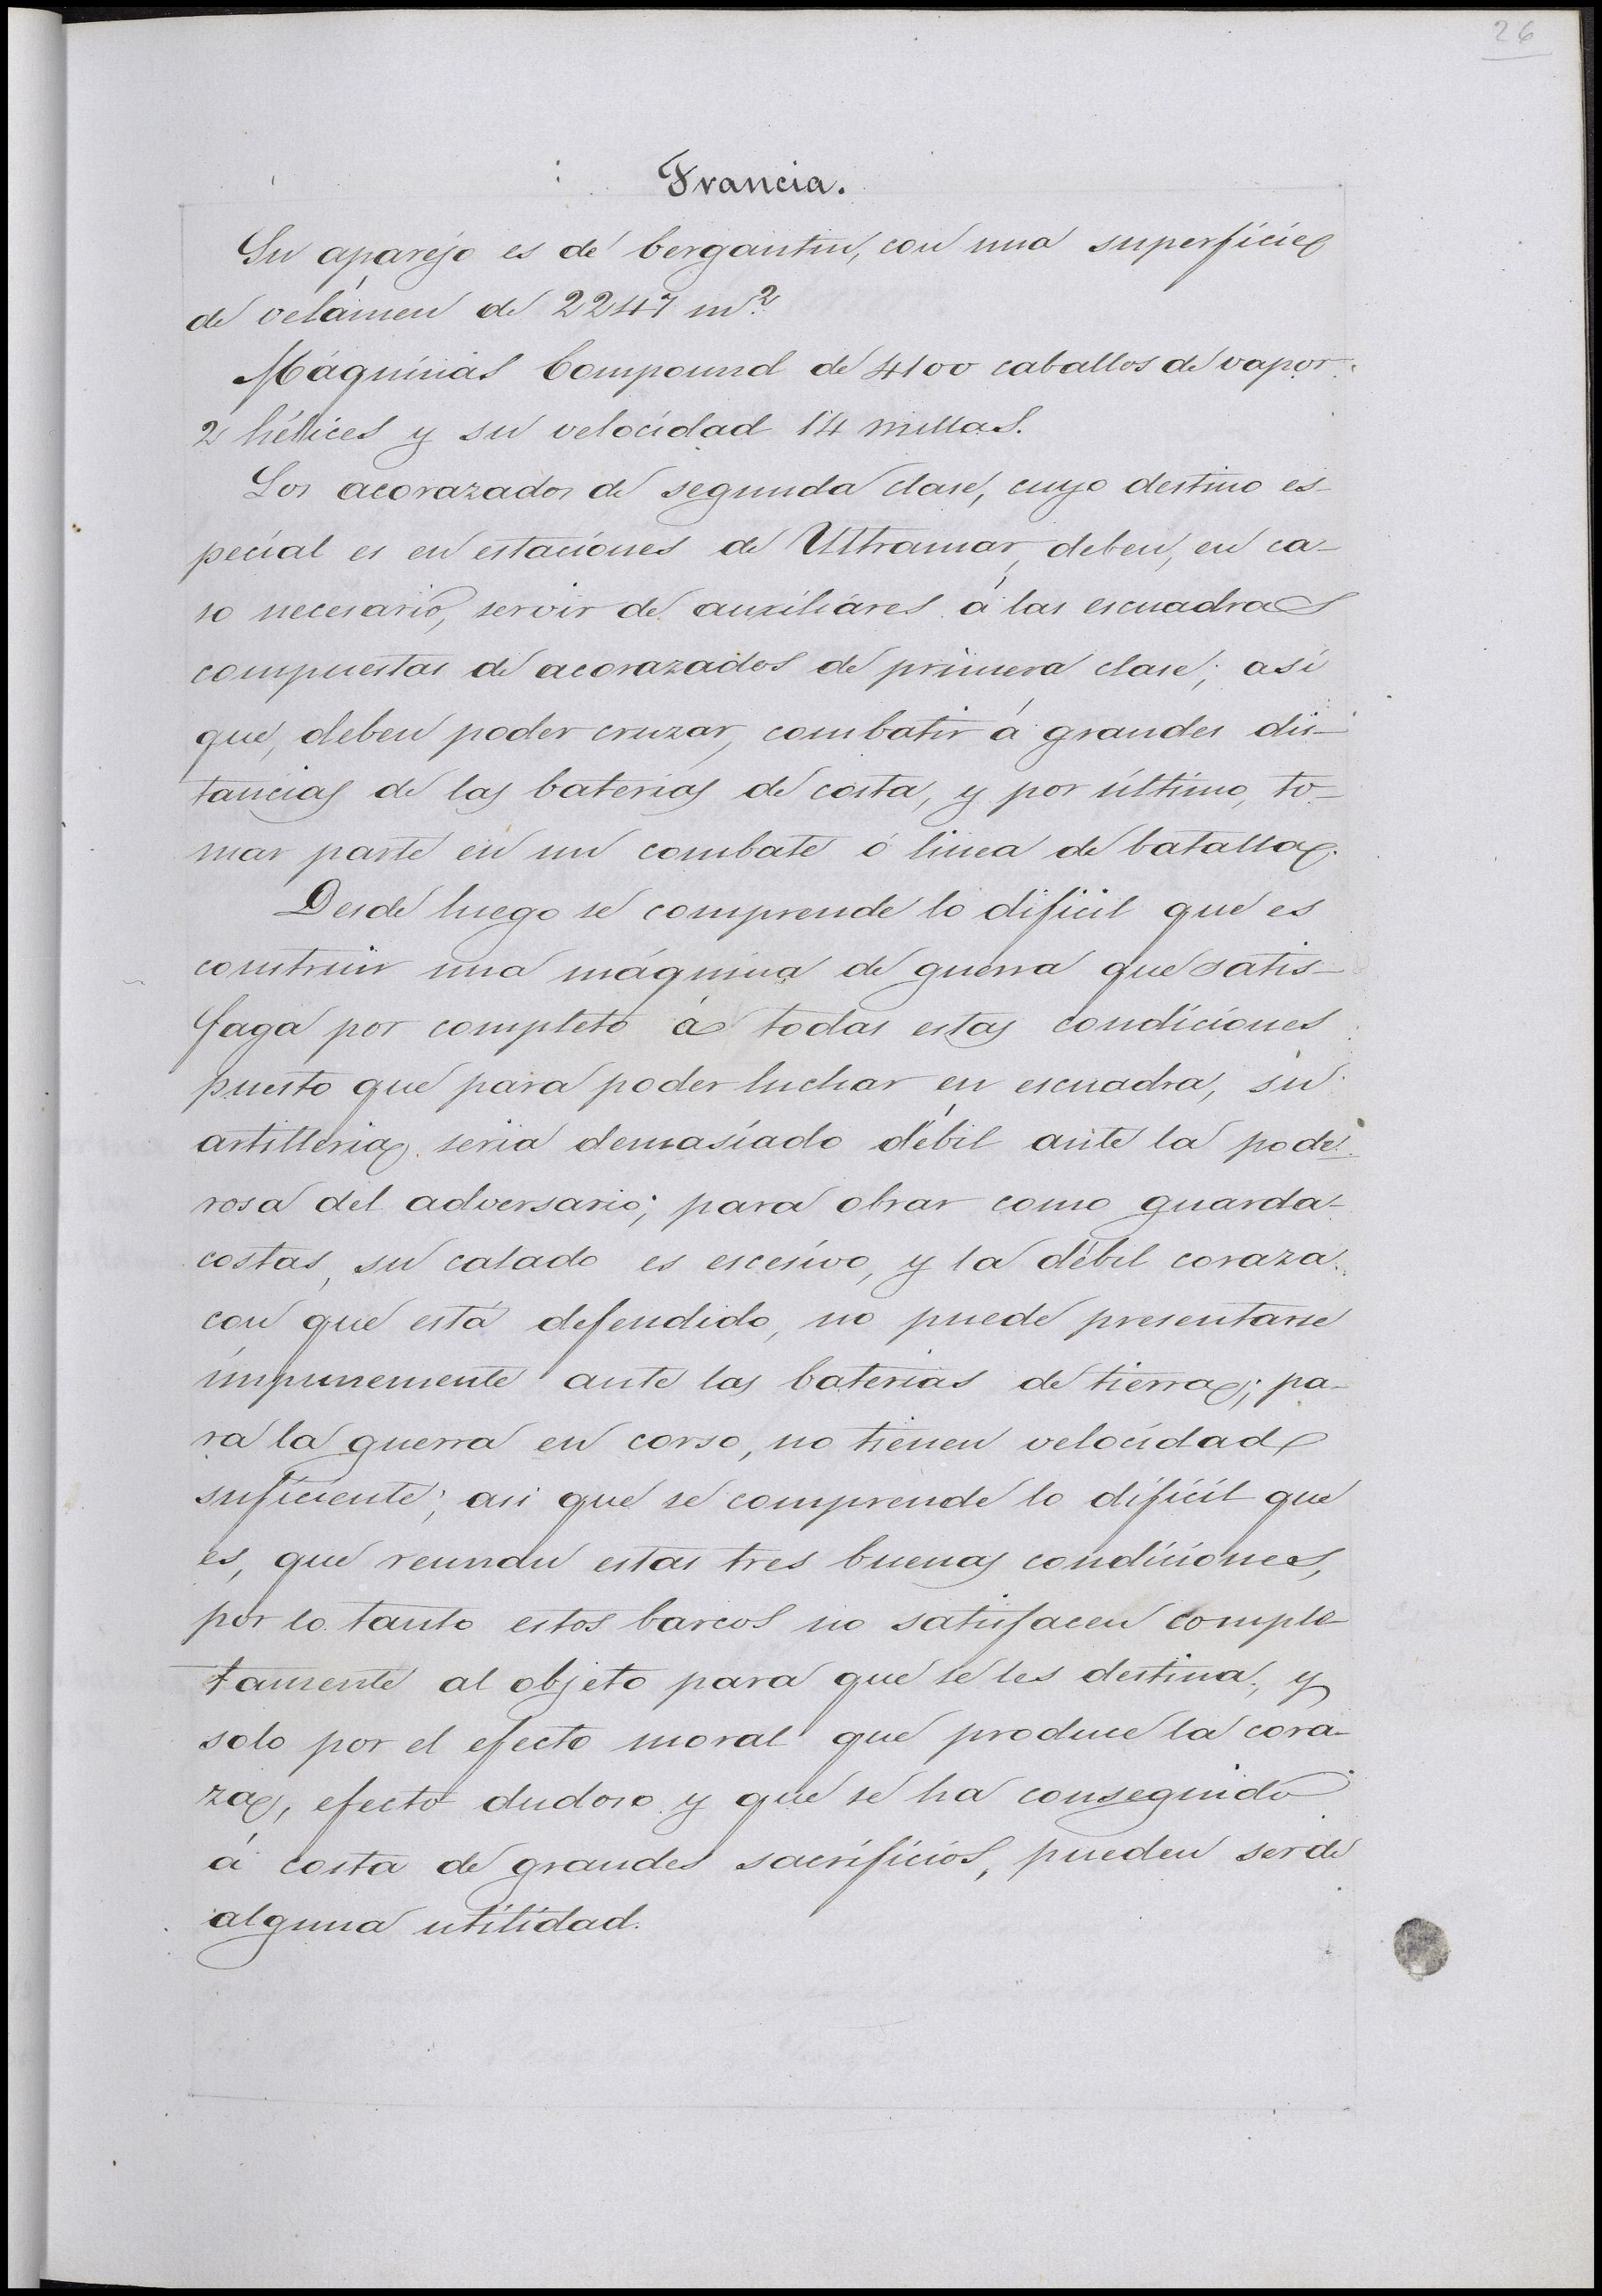 26
Francia.
Su aparejo es de bergantin, con una superficie
de velámen de 2247 m²
Máquinas Compound de 4100 caballos de vapor.
2 hélices y su velocidad 14 millas.
Los acorazados de segunda clase, cuyo destino es-
pecial es en estaciones de Ultramar, deben, en ca-
so necesario, servir de auxiliares á las escuadras
compuestas de acorazados de primera clase; asi
que, deben poder cruzar, combatir á grandes dis-
tancias de las baterias de costa, y por último, to-
mar parte en un combate ó linea de batalla.
Desde luego se comprende lo dificil que es
construir una máquina de guerra que satis-
faga por completo á todas estas condiciones
puesto que para poder luchar en escuadra, su
artilleria seria demasiado débil ante la pode-
rosa del adversario; para obrar como guarda-
costas, su calado es escesivo, y la débil coraza
con que está defendido, no puede presentarse
impunemente ante las baterias de tierra; pa-
ra la guerra en corso, no tienen velocidad
suficiente; asi que se comprende lo dificil que
es, que reunan estas tres buenas condiciones,
por lo tanto estos barcos no satisfacen comple-
tamente al objeto para que se les destina, y
solo por el efecto moral que produce la cora-
za, efecto dudoso y que se ha conseguido
á costa de grandes sacrificios, pueden ser de
alguna utilidad.